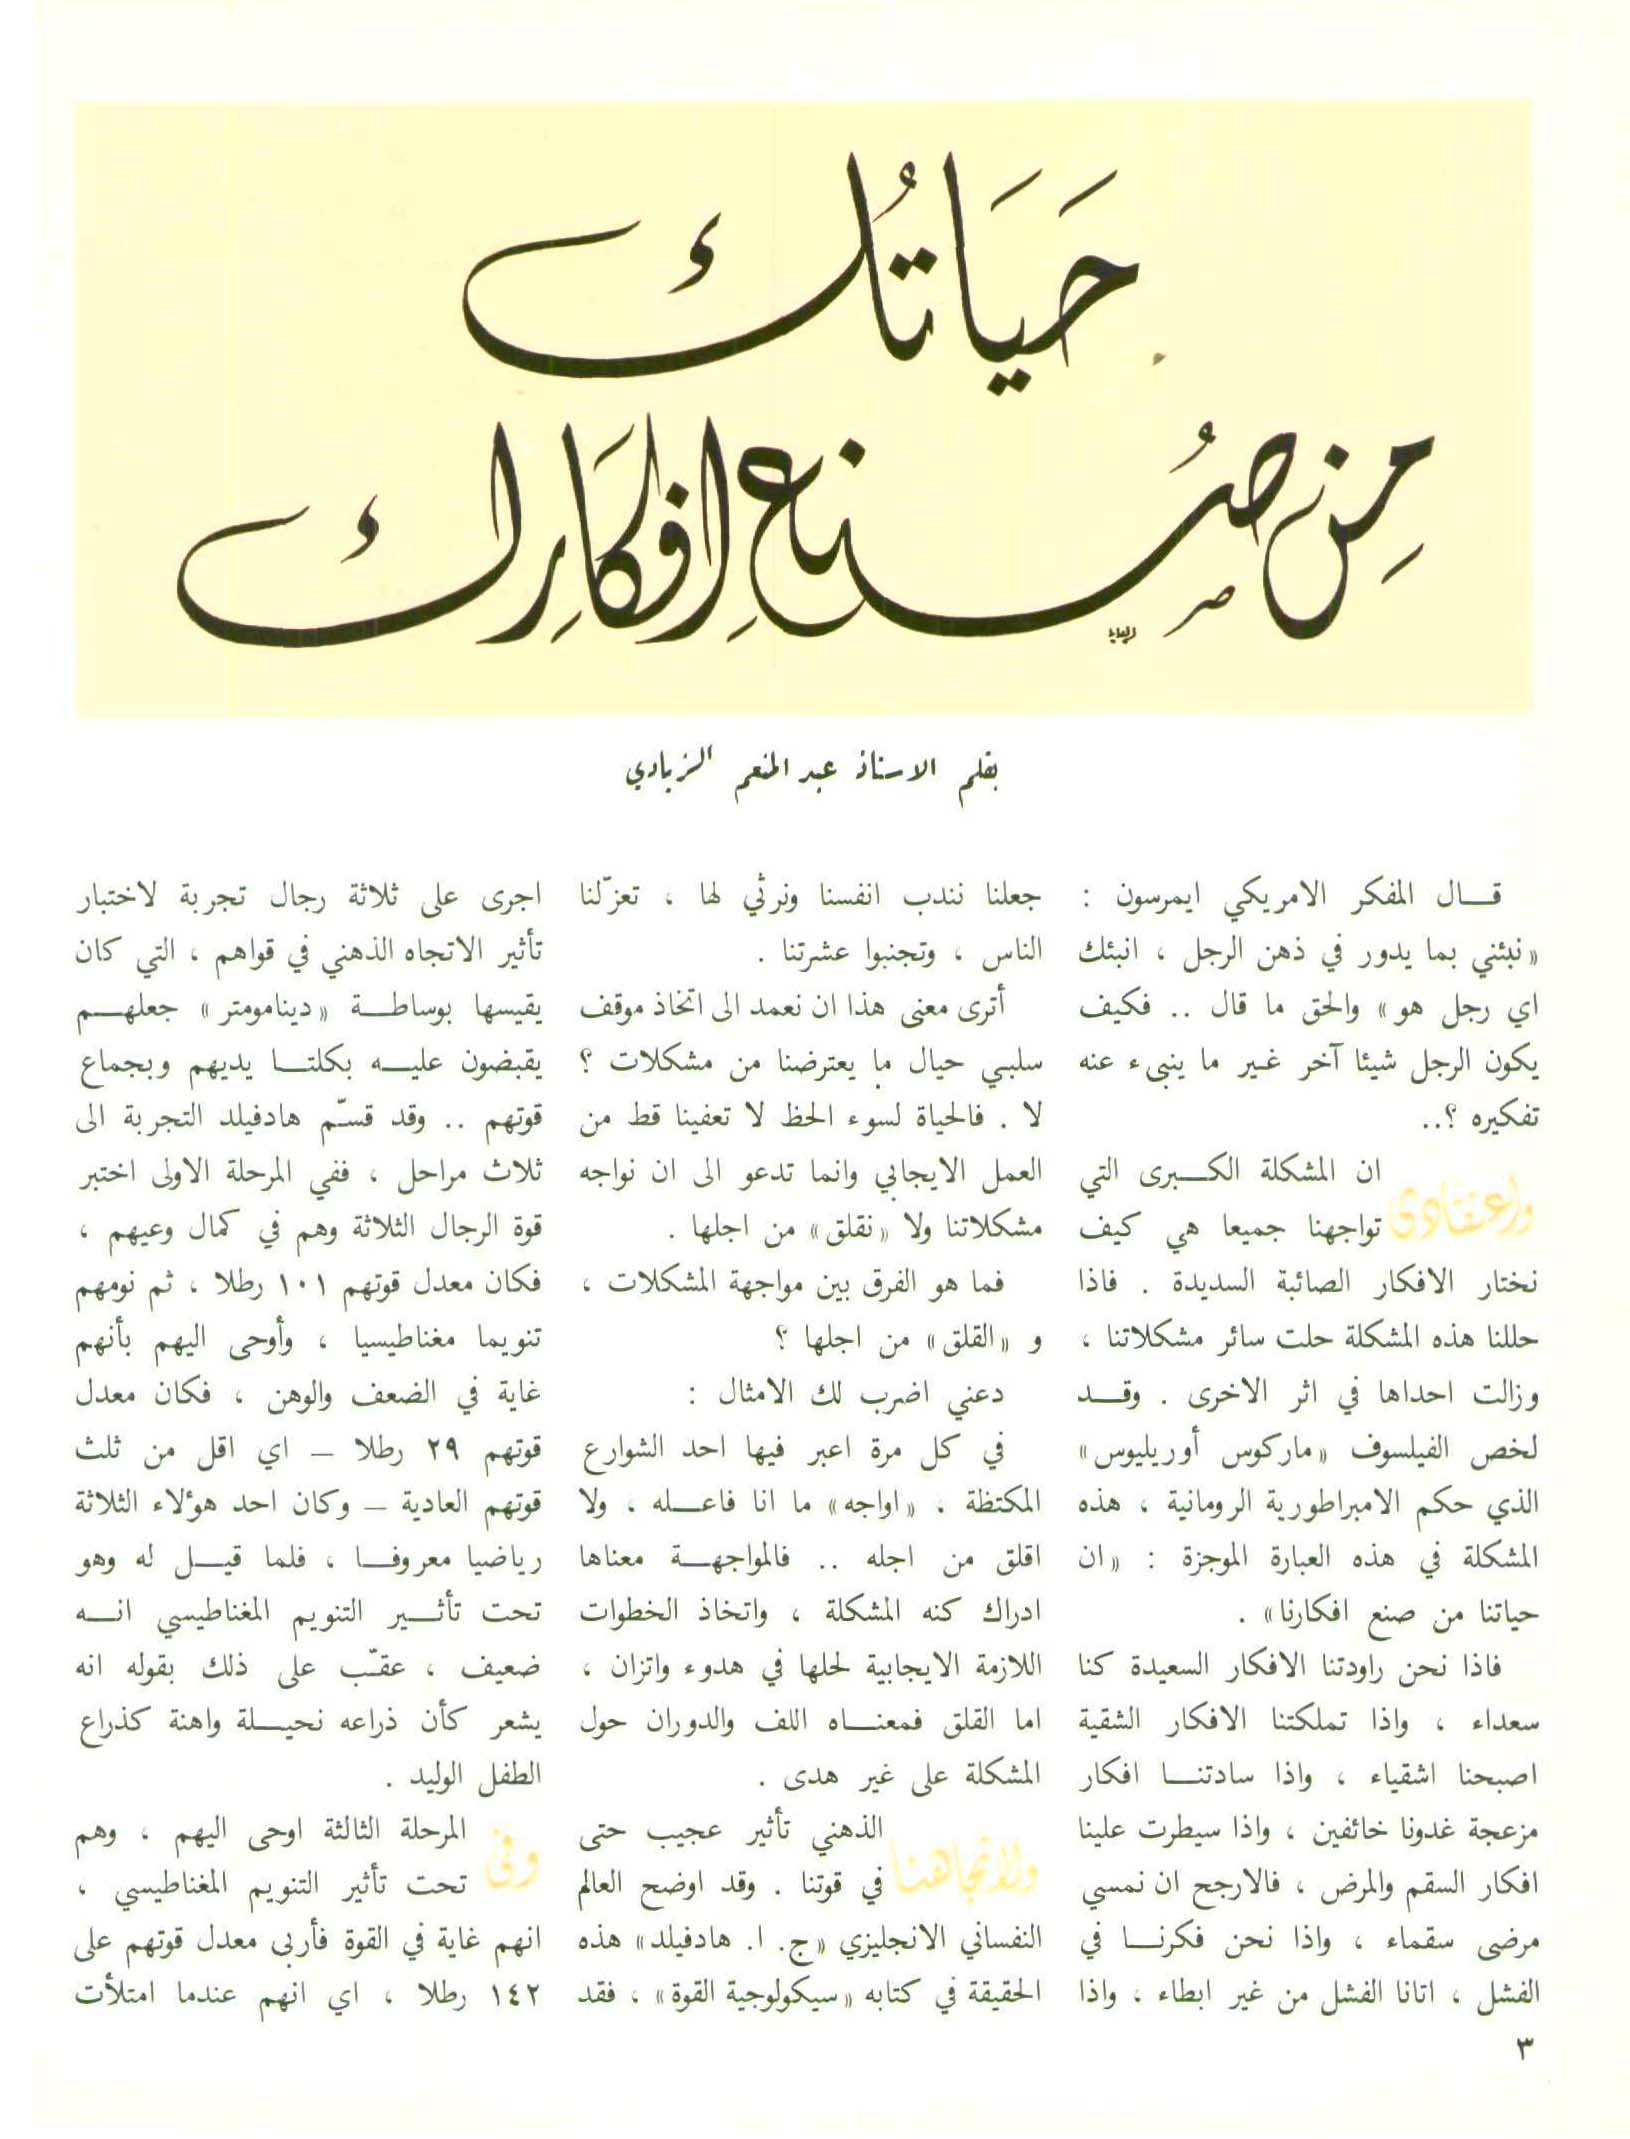 حَيَاتُك
مِن صُنع اِفكَارِك
بقلم الاستاذ عبد المنعم الزيادي
قـــال المفكر الامريكي ايمرسون :
«نبئني بما يدور في ذهن الرجل ، انبئك
اي رجل هو» والحق ما قال .. فكيف
يكون الرجل شيئا آخر غير ما ينبىء عنه
تفكيره ؟..
واعتقادي ان المشكلة الكـــبرى التي
تواجهنا جميعا هي كيف
نختار الافكار الصائبة السديدة . فاذا
حللنا هذه المشكلة حلت سائر مشكلاتنا ،
وزالت احداها في اثر الاخرى . وقـــد
لخص الفيلسوف «ماركوس أوريليوس»
الذي حكم الامبراطورية الرومانية ، هذه
المشكلة في هذه العبارة الموجزة : «ان
حياتنا من صنع افكارنا» .
فاذا نحن راودتنا الافكار السعيدة كنا
سعداء ، واذا تملكتنا الافكار الشقية
اصبحنا اشقياء ، واذا سادتنـــا افكار
مزعجة غدونا خائفين ، واذا سيطرت علينا
افكار السقم والمرض ، فالارجح ان نمسي
مرضى سقماء ، واذا نحن فكرنـــا في
الفشل ، اتانا الفشل من غير ابطاء ، واذا
جعلنا نندب انفسنا ونرثي لها ، تعزّلنا
الناس ، وتجنبوا عشرتنا .
أترى معنى هذا ان نعمد الى اتخاذ موقف
سلبي حيال ما يعترضنا من مشكلات ؟
لا . فالحياة لسوء الحظ لا تعفينا قط من
العمل الايجابي وانما تدعو الى ان نواجه
مشكلاتنا ولا «نقلق» من اجلها .
فما هو الفرق بين مواجهة المشكلات ،
و «القلق» من اجلها ؟
دعني اضرب لك الامثال :
في كل مرة اعبر فيها احد الشوارع
المكتظة ، «اواجه» ما انا فاعـــله ، ولا
اقلق من اجله .. فالمواجهـــة معناها
ادراك كنه المشكلة ، واتخاذ الخطوات
اللازمة الايجابية لحلها في هدوء واتزان ،
اما القلق فمعنـــاه اللف والدوران حول
المشكلة على غير هدى .
ولاتجاهنا الذهني تأثير عجيب حتى
في قوتنا . وقد اوضح العالم
النفساني الانجليزي «ج. ا. هادفيلد» هذه
الحقيقة في كتابه «سيكولوجية القوة» ، فقد
اجرى على ثلاثة رجال تجربة لاختبار
تأثير الاتجاه الذهني في قواهم ، التي كان
يقيسها بوساطـــة «دينامومتر» جعلهـــم
يقبضون عليـــه بكلتـــا يديهم وبجماع
قوتهم .. وقد قسّم هادفيلد التجربة الى
ثلاث مراحل ، ففي المرحلة الاولى اختبر
قوة الرجال الثلاثة وهم في كمال وعيهم ،
فكان معدل قوتهم ١٠١ رطلا ، ثم نومهم
تنويما مغناطيسيا ، وأوحى اليهم بأنهم
غاية في الضعف والوهن ، فكان معدل
قوتهم ٢٩ رطلا – اي اقل من ثلث
قوتهم العادية – وكان احد هؤلاء الثلاثة
رياضيا معروفـــا ، فلما قيـــل له وهو
تحت تأثـــير التنويم المغناطيسي انـــه
ضعيف ، عقّب على ذلك بقوله انه
يشعر كأن ذراعه نحيـــلة واهنة كذراع
الطفل الوليد .
وفي المرحلة الثالثة اوحى اليهم ، وهم
تحت تأثير التنويم المغناطيسي ،
انهم غاية في القوة فأربى معدل قوتهم على
١٤٢ رطلا ، اي انهم عندما امتلأت
٣